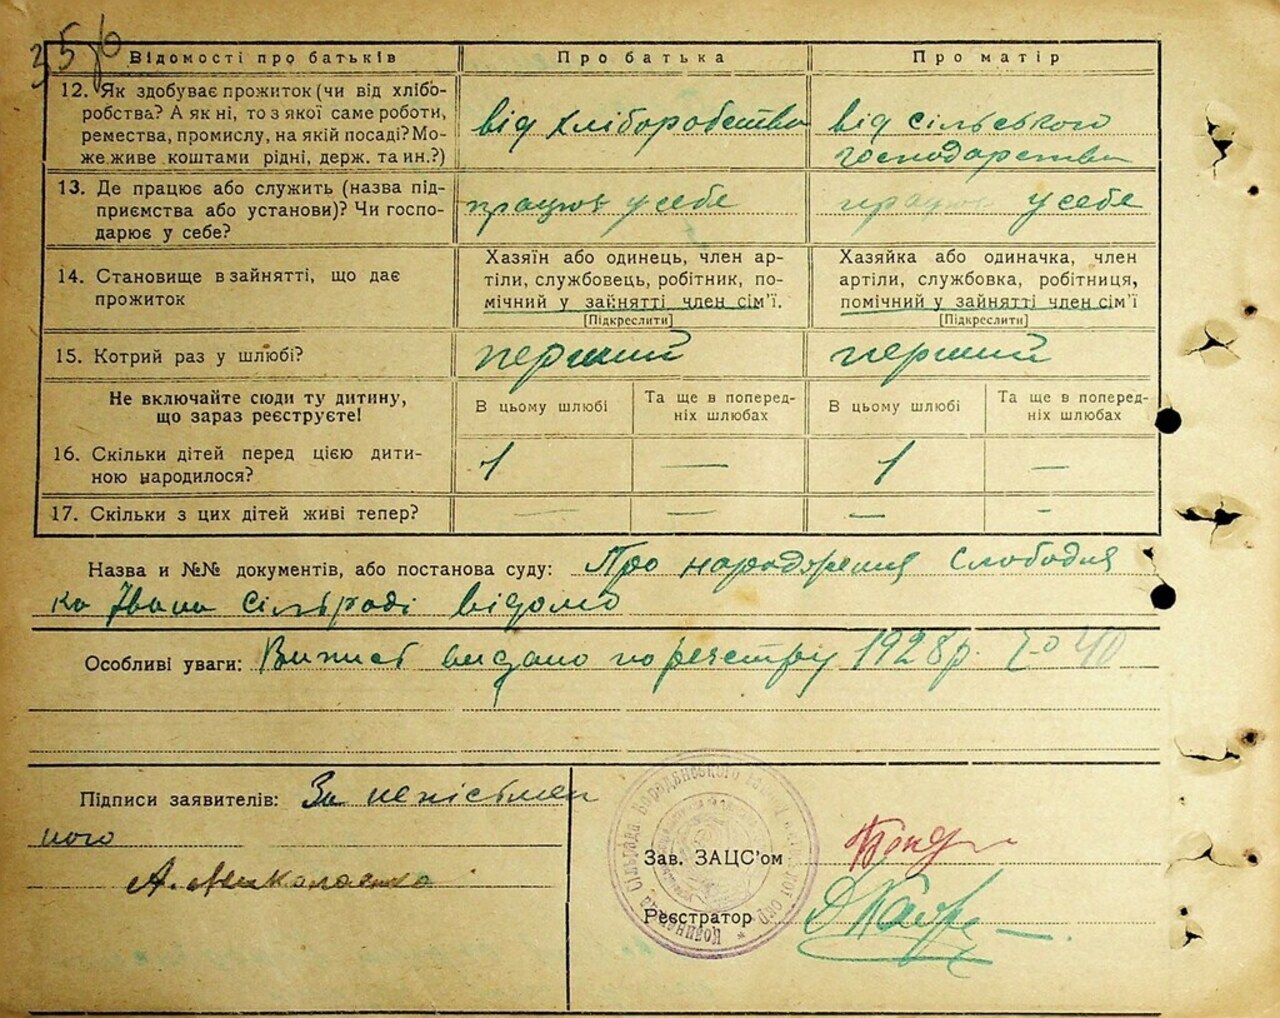 35
Відомості про батьків
Про батька
Про матір
12. Як здобуває прожиток (чи від хлібо-
робства? А як ні, то з якої саме роботи,
ремества, промислу, на якій посаді? Мо-
же живе коштами рідні, держ. та ин.?)
від хліборобства
від сільського
господарства
13. Де працює або служить (назва під-
приємства або установи)? Чи госпо-
дарює у себе?
працює у себе
працює у себе
14. Становище в зайнятті, що дає
прожиток
Хазяїн або одинець, член ар-
тіли, службовець, робітник, по-
мічний у зайнятті член сім'ї.
[Підкреслити]
Хазяйка або одиначка, член
артіли, службовка, робітниця,
помічний у зайнятті член сім'ї
[Підкреслити]
15. Котрий раз у шлюбі?
перший
перший
Не включайте сюди ту дитину,
що зараз реєструєте!
В цьому шлюбі
Та ще в поперед-
ніх шлюбах
В цьому шлюбі
Та ще в поперед-
ніх шлюбах
16. Скільки дітей перед цією дити-
ною народилося?
1
—
1
—
17. Скільки з цих дітей живі тепер?
—
—
—
—
Назва и №№ документів, або постанова суду: Про народження Слободян
ка Івана сільраді відомо
Особливі уваги: Випис видано по реєстру 1928 р. 40
Підписи заявителів: За неписьмен
ного
А. Миколаєнко
Зав. ЗАЦС'ом
Реєстратор
Сільрада Бородянського